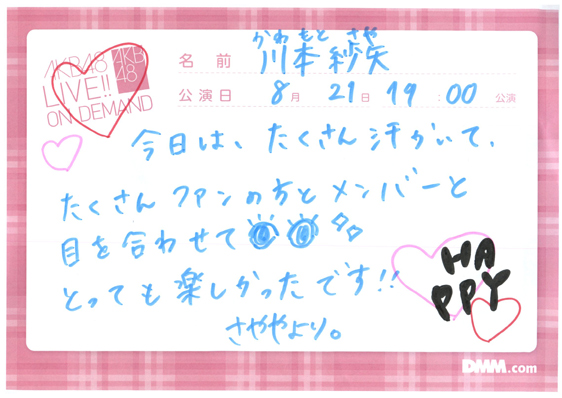 AKB48
LIVE!!
ON DEMAND
AKB
48
かわもと さや
名前 川本 紗矢
公演日 8月 21日 19:00 公演
今日は、たくさん汗かいて、
たくさん ファンの方と メンバーと
目を合わせて
とっても楽しかったです!!
さややより。
HA
PPY
DMM.com